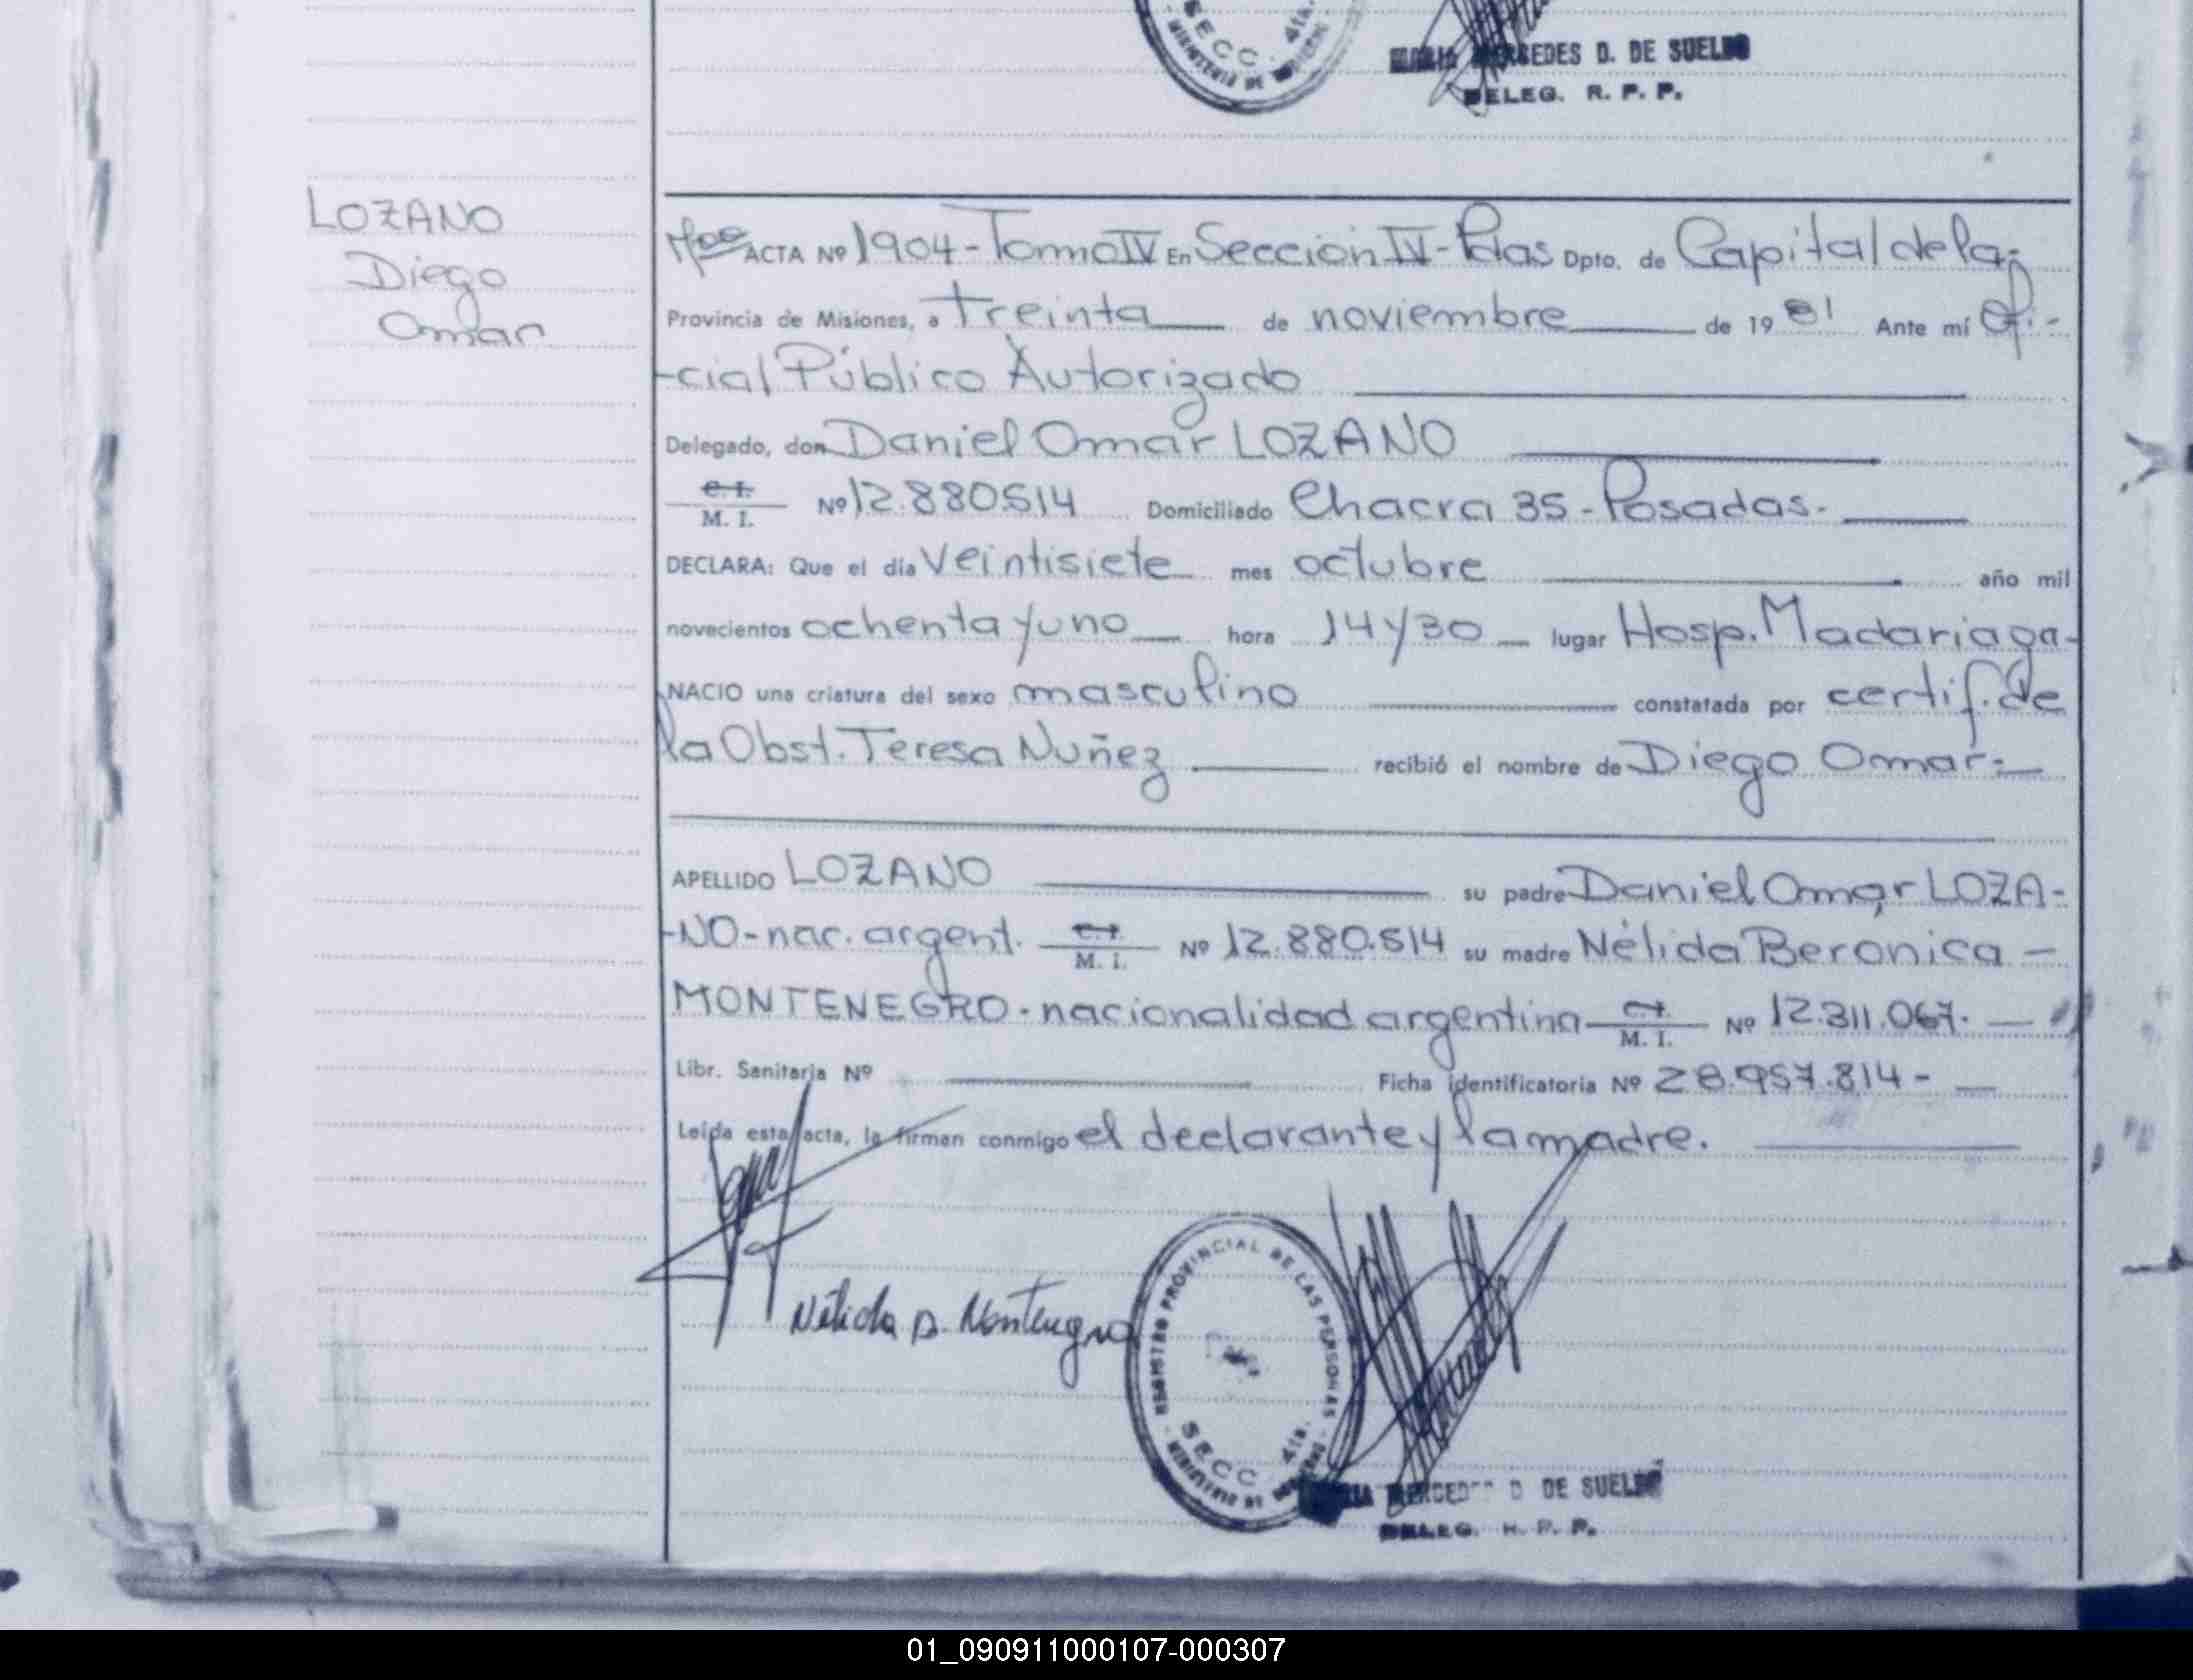 SECC. 4ta.
MARIA MERCEDES D. DE SUELDO
DELEG. R. P. P.
LOZANO
Diego
Omar
ACTA Nº 1904 - Tomo IV En Sección IV - Pdas Dpto. de Capital de la-
Provincia de Misiones, a Treinta de noviembre de 19 81 Ante mí Ofi-
-cial Público Autorizado
Delegado, don Daniel Omar LOZANO
C. I.
M. I. Nº 12.880.514 Domiciliado Chacra 35 - Posadas.-
DECLARA: Que el día Veintisiete mes octubre año mil
novecientos ochenta y uno hora 14 y 30 lugar Hosp. Madariaga-
NACIO una criatura del sexo masculino constatada por certif. de
la Obst. Teresa Nuñez recibió el nombre de Diego Omar.-
APELLIDO LOZANO su padre Daniel Omar LOZA-
-NO - nac. argent. C. I. M. I. Nº 12.880.514 su madre Nélida Beronica -
MONTENEGRO - nacionalidad argentina C. I. M. I. Nº 12.311.067.-
Libr. Sanitaria Nº Ficha identificatoria Nº 28.957.814 -
Leída esta acta, la firman conmigo el declarante y la madre.
Nélida B. Montenegro
REGISTRO PROVINCIAL DE LAS PERSONAS
SECC. 4ta.
MINISTERIO DE GOBIERNO
MARIA MERCEDES D. DE SUELDO
DELEG. R. P. P.
01_090911000107-000307